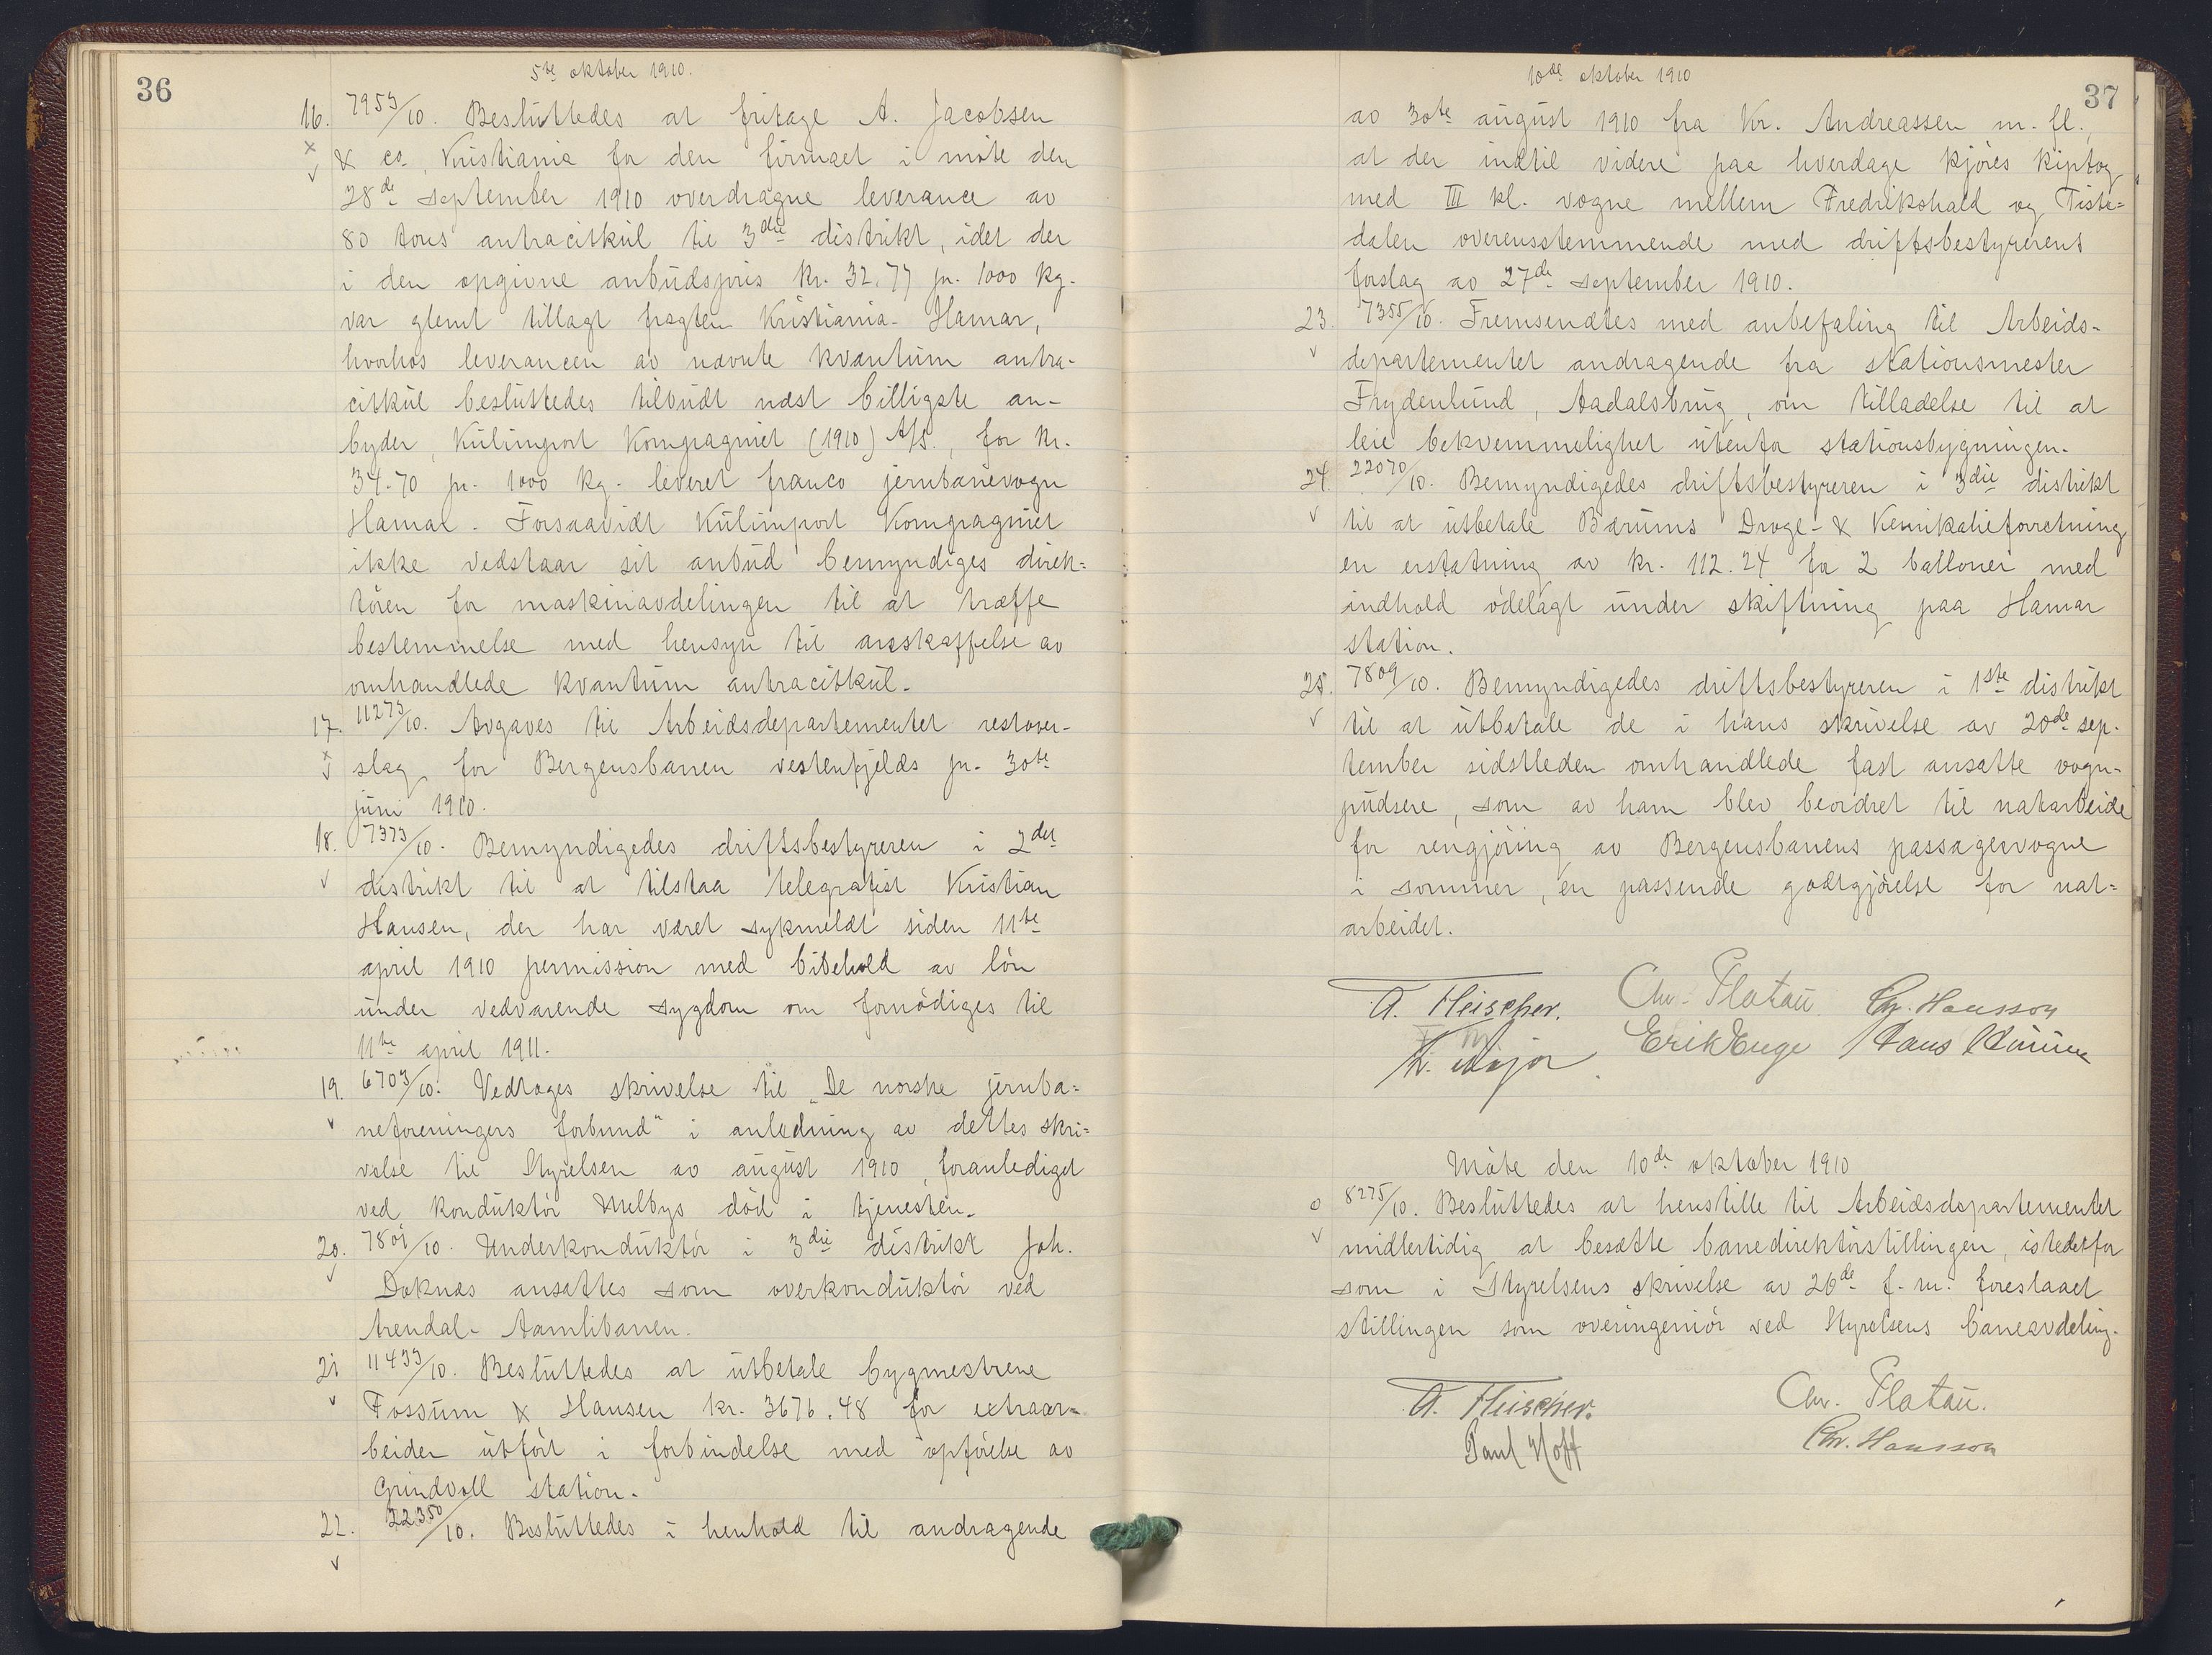 36
5te oktober 1910.
16. 7953/10. Besluttedes at fritage A. Jacobsen
x & co, Kristiania for den firmaet i møte den
v 28de september 1910 overdragne leverance av
80 tons antracitkul til 3die distrikt, idet der
i den opgivne anbudspris kr. 32.77 pr. 1000 kg.
var glemt tillagt fragten Kristiania - Hamar,
hvorhos leverancen av nævnte kvantum antra-
citkul besluttedes tilbudt næst billigste an-
byder, Kulimport Kompagniet (1910) A/S., for kr.
34.70 pr. 1000 kg. leveret franco jernbanevogn
Hamar. Forsaavidt Kulimport Kompagniet
ikke vedstaar sit anbud bemyndiges direk=
tøren for maskinavdelingen til at træffe
bestemmelse med hensyn til anskaffelse av
omhandlede kvantum antracitkul.
17. 11273/10. Avgaves til Arbeidsdepartementet restover-
x v slag for Bergensbanen vestenfjelds pr. 30te
juni 1910.
18. 7373/10. Bemyndigedes driftsbestyreren i 2det
v distrikt til at tilstaa telegrafist Kristian
Hansen, der har været sykmeldt siden 11te
april 1910 permission med bibehold av løn
under vedvarende sygdom om fornødiges til
11te april 1911.
19. 6703/10. Vedtoges skrivelse til „De norske jernba=
v neforeningers forbund" i anledning av dettes skri=
velse til Styrelsen av august 1910, foranlediget
ved konduktør Melbys død i tjenesten.
20. 7801/10. Underkonduktør i 3die distrikt Joh.
v Doknæs ansattes som overkonduktør ved
Arendal - Aamlibanen.
21 11433/10. Besluttedes at utbetale bygmestrene
v Fossum & Hansen kr. 3676.48 for extraar=
beider utført i forbindelse med opførelse av
Grindvoll station.
22. 22350/10. Besluttedes i henhold til andragende
v
37
10de oktober 1910
av 30te august 1910 fra Kr. Andreassen m. fl.,
at der indtil videre paa hverdage kjøres kiptog
med III kl. vogne mellem Fredrikshald og Tiste=
dalen overensstemmende med driftsbestyrerens
forslag av 27de september 1910.
23. 7355/10. Fremsendtes med anbefaling til Arbeids-
v departementet andragende fra stationsmester
Frydenlund, Aadalsbrug, om tilladelse til at
leie bekvemmelighet utenfor stationsbygningen.
24 22070/10. Bemyndigedes driftsbestyreren i 3die distrikt
v til at utbetale Bærums Droge- & Kemikalieforretning
en erstatning av kr. 112.24 for 2 balloner med
indhold ødelagt under skiftning paa Hamar
station.
25. 7809/10. Bemyndigedes driftsbestyreren i 1ste distrikt
v til at utbetale de i hans skrivelse av 20de sep-
tember sidstleden omhandlede fast ansatte vogn-
pudsere, som av ham blev beordret til natarbeide
for rengjøring av Bergensbanens passagervogne
i sommer, en passende godtgjørelse for nat=
arbeidet.
A. Fleischer. Chr. Platou Chr. Hansson
Erik Enge Hans
Møte den 10de oktober 1910
o 8275/10. Besluttedes at henstille til Arbeidsdepartementet
v midlertidig at besætte banedirektørstillingen, istedetfor
som i Styrelsens skrivelse av 26de f. m. foreslaaet
stillingen som overingeniør ved Styrelsens baneavdeling.
A. Fleischer. Chr. Platou.
Paul Hoff Chr. Hansson